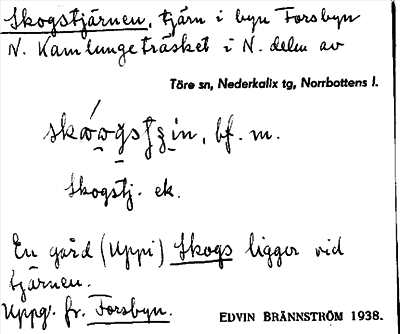 Skogstjärnen, tjärn i byn Forsbyn
N. Kamlungeträsket i N. delen av
Töre sn, Nederkalix tg, Norrbottens l.
bf. m.
Skogstj. ek.
En gård (Uppi) Skogs ligger vid
tjärnen.
Uppg. fr. Forsbyn.
EDVIN BRÄNNSTRÖM 1938.